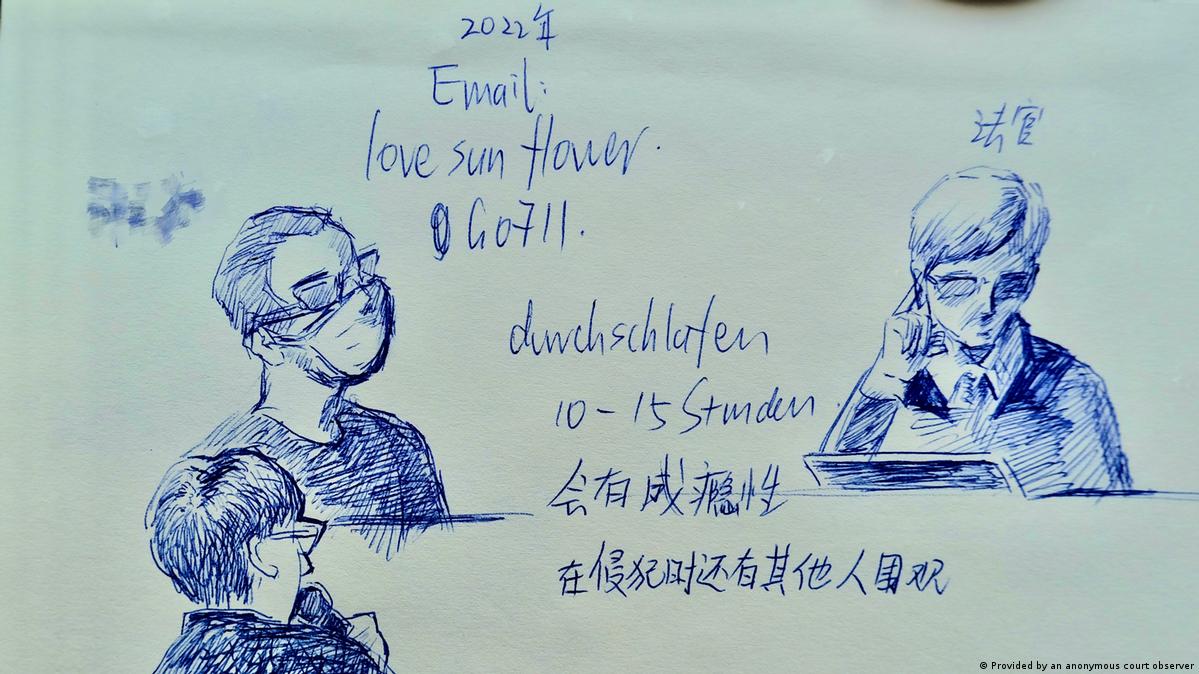 2022年
Email:
love sun flower.
@Go711.
法官
durchschlafen
10-15 Stunden.
会有成瘾性
在侵犯时还有其他人围观
© Provided by an anonymous court observer